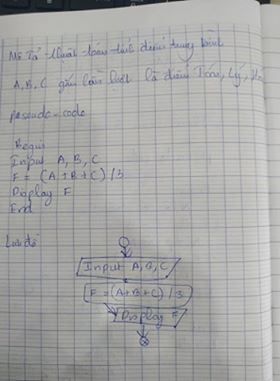 Mô Tả thuật toán tính điểm trung bình
A, B, C gần lần lượt là điểm Toán, Lý,
pseudo-code
Begin
Input A, B, C
F = (A+B+C) / 3
Display F
End
Lưu đồ
Input A, B, C
F = (A+B+C) / 3
Display F